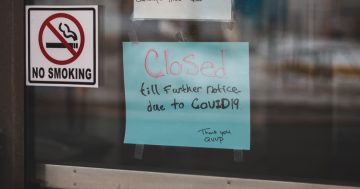 NO SMOKING
Closed
till Further notice
due to COVID19
Thank you